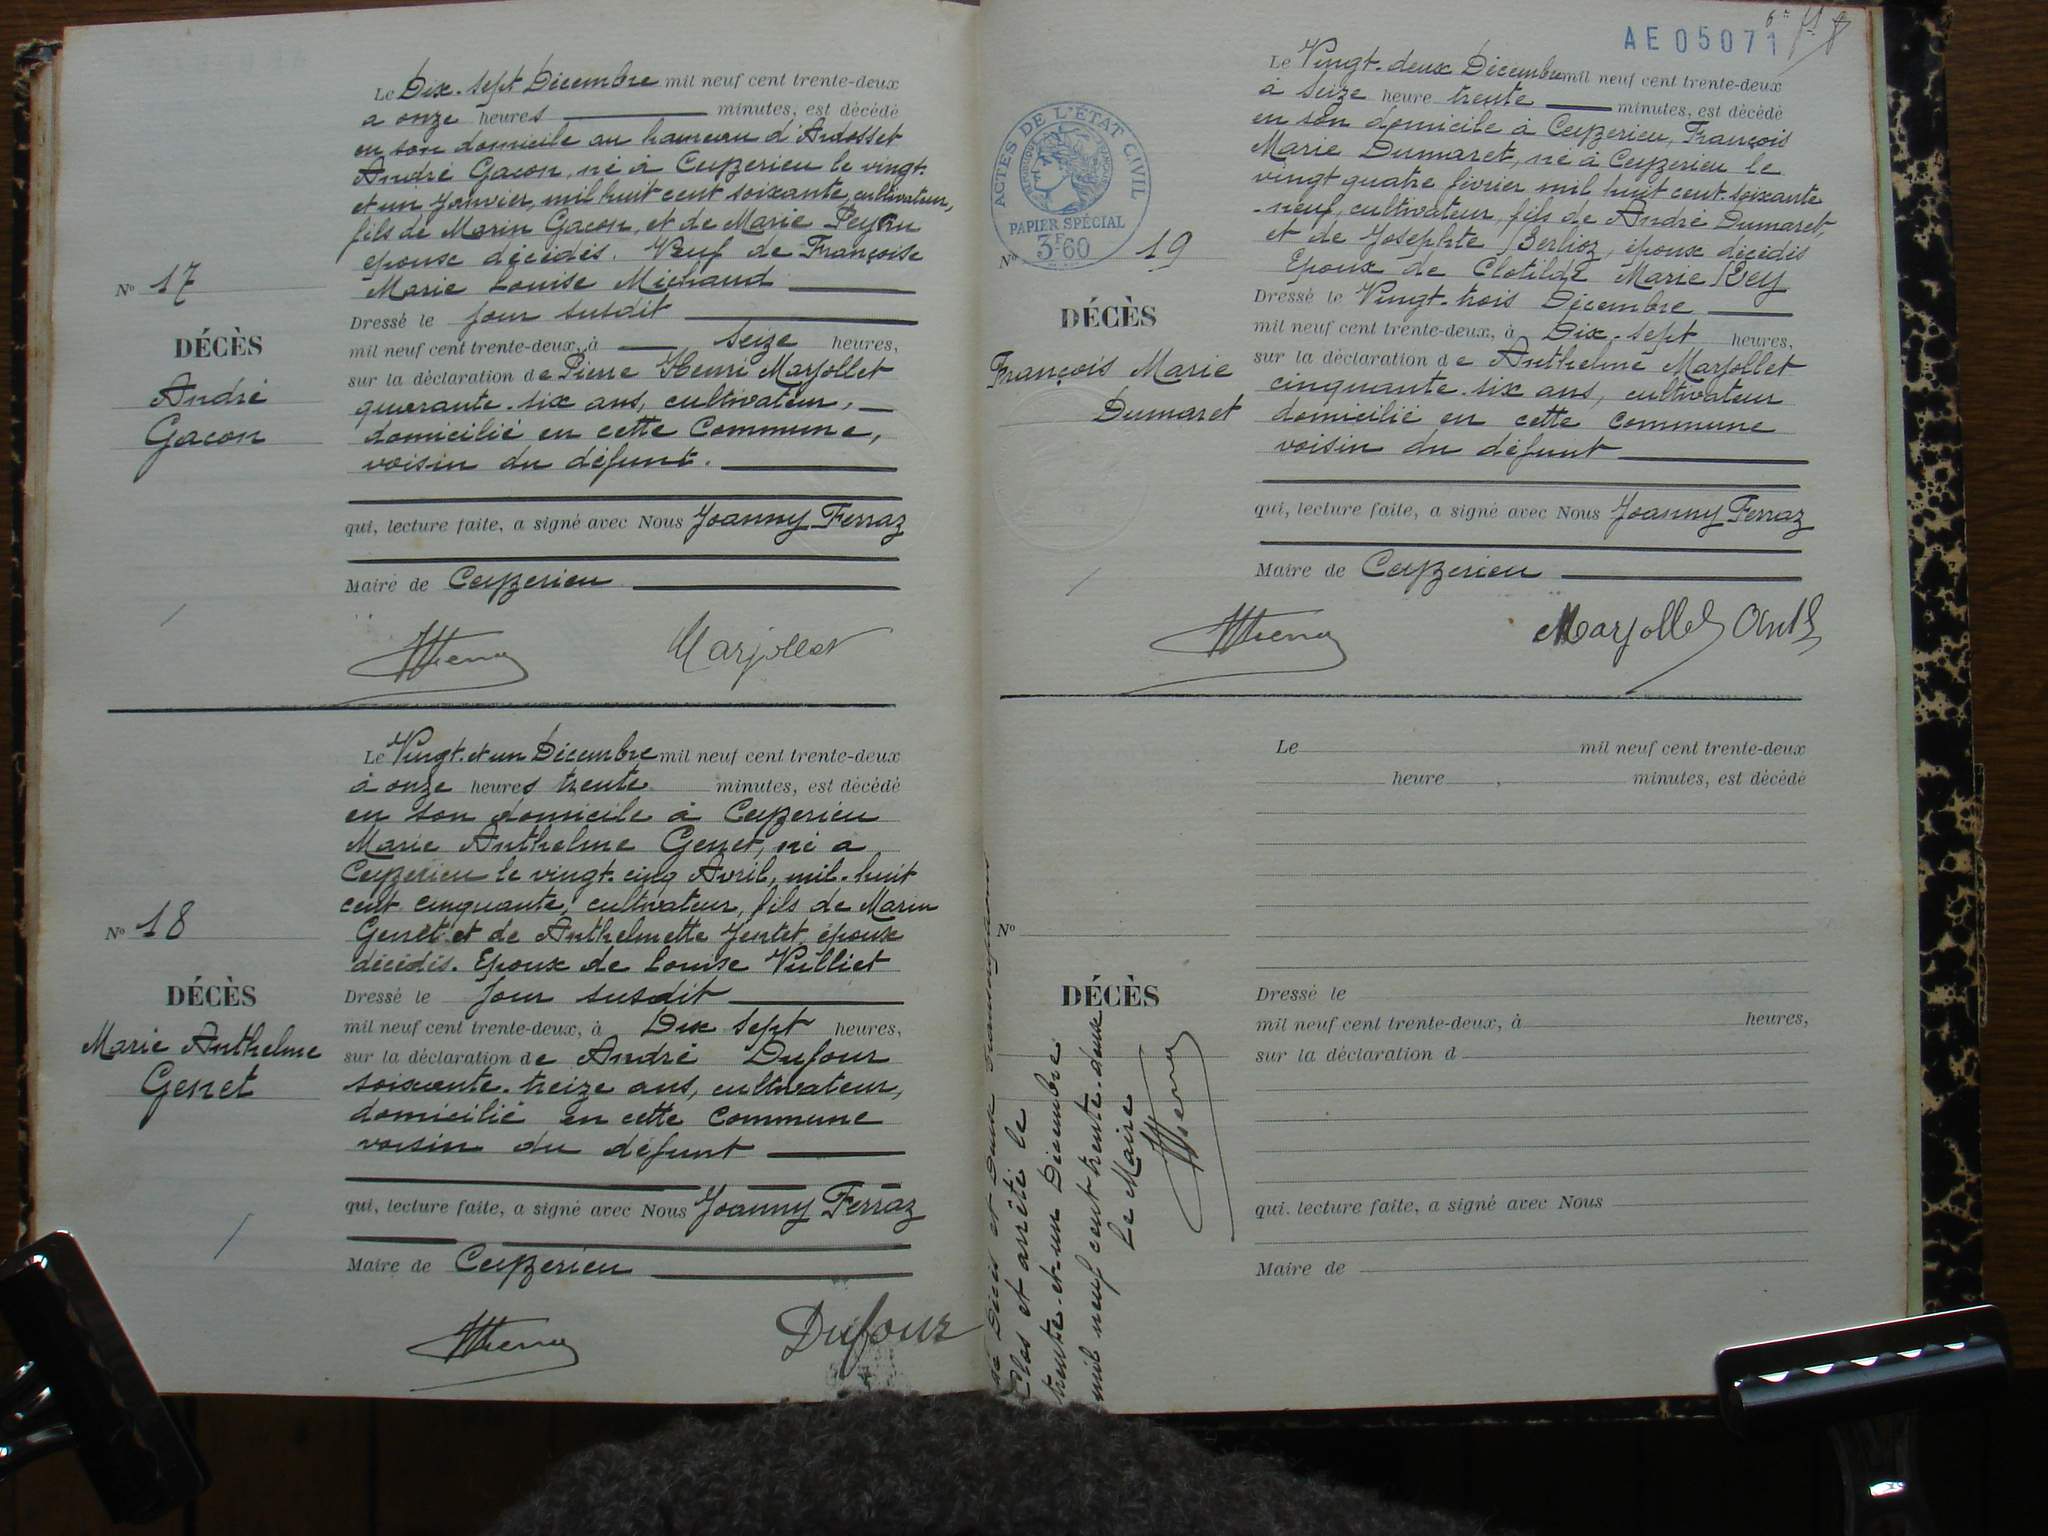 Le Dix-sept Décembre mil neuf cent trente-deux
à onze heures minutes, est décédé
en son domicile au hameau d'Ardosset
André Gacon, né à Ceyzerieu le vingt-
et un Janvier, mil huit cent soixante, cultivateur,
fils de Marin Gacon, et de Marie
époux décédés. Veuf de Françoise
Marie Louise Michaud
N° 17
Dressé le jour susdit
DÉCÈS
mil neuf cent trente-deux, à seize heures,
sur la déclaration de Pierre Henri Marjollet
André
quarante-six ans, cultivateur,
Gacon
domicilié en cette Commune,
voisin du défunt.
qui, lecture faite, a signé avec Nous Joanny Ferraz
Maire de Ceyzerieu
Marjollet
Le Vingt-et un Décembre mil neuf cent trente-deux
à onze heures trente minutes, est décédé
en son domicile à Ceyzerieu
Marie Anthelme Genet, né à
Ceyzerieu le vingt-cinq Avril, mil-huit
cent cinquante, cultivateur, fils de Marin
N° 18
Genet et de Anthelmette époux
décédés. Epoux de Louise Vulliet
DÉCÈS
Dressé le jour susdit
mil neuf cent trente-deux, à Dix sept heures,
Marie Anthelme
Genet
sur la déclaration de André Dufour
soixante-treize ans, cultivateur,
domicilié en cette commune
voisin du défunt
qui, lecture faite, a signé avec Nous Joanny Ferraz
Maire de Ceyzerieu
Dufour
AE05071
Le Vingt-deux Décembre mil neuf cent trente-deux
à seize heure trente minutes, est décédé
en son domicile à Ceyzerieu, François
Marie Dumaret, né à Ceyzerieu le
vingt quatre février mil huit cent soixante
-neuf, cultivateur, fils de André Dumaret,
et de Josephte Berlioz, époux décédés
Epoux de Clotilde Marie Rey
ACTES DE L'ÉTAT CIVIL
RÉPUBLIQUE FRANÇAISE
PAPIER SPÉCIAL
3F60
N° 19
DÉCÈS
François Marie
Dumaret
Dressé le Vingt-trois Décembre
mil neuf cent trente-deux, à Dix-sept heures,
sur la déclaration de Anthelme Marjollet
cinquante-six ans, cultivateur
domicilié en cette commune
voisin du défunt
qui, lecture faite, a signé avec Nous Joanny Ferraz
Maire de Ceyzerieu
Marjollet Anth
Le mil neuf cent trente-deux
heure minutes, est décédé
N°
DÉCÈS
Dressé le
mil neuf cent trente-deux, à heures,
sur la déclaration d
qui, lecture faite, a signé avec Nous
Maire de
Clos et arrêté le
trente-et-un Décembre
mil neuf cent trente-deux
Le Maire